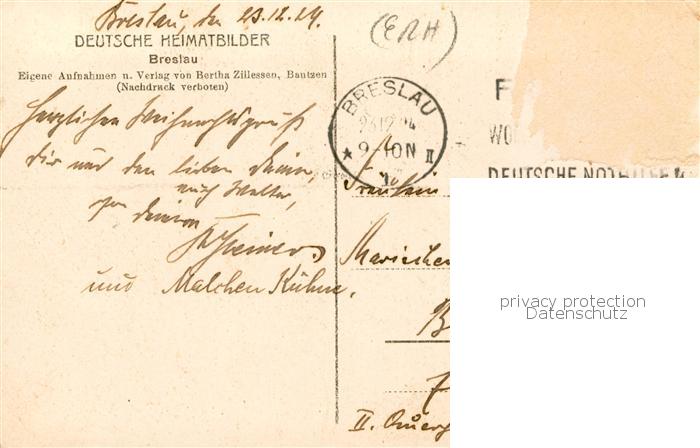 Breslau, den 23.12.24.
(ERH)
DEUTSCHE HEIMATBILDER
Breslau
Eigene Aufnahmen u. Verlag von Bertha Zillessen, Bautzen
(Nachdruck verboten)
Herzlichen Weihnachtsgruß
Dir und den lieben Deinen,
auch Walter,
von Deinem
und Malchen Kühne.
BRESLAU
23.12.24
★ 9-10N II
F
WO
DEUTSCHE NOTHILFE
Fräulein
Mariechen
B
7
II. Querg
privacy protection
Datenschutz